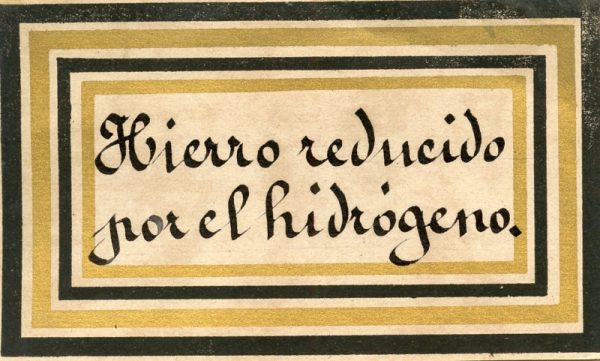 Hierro reducido
por el hidrógeno.